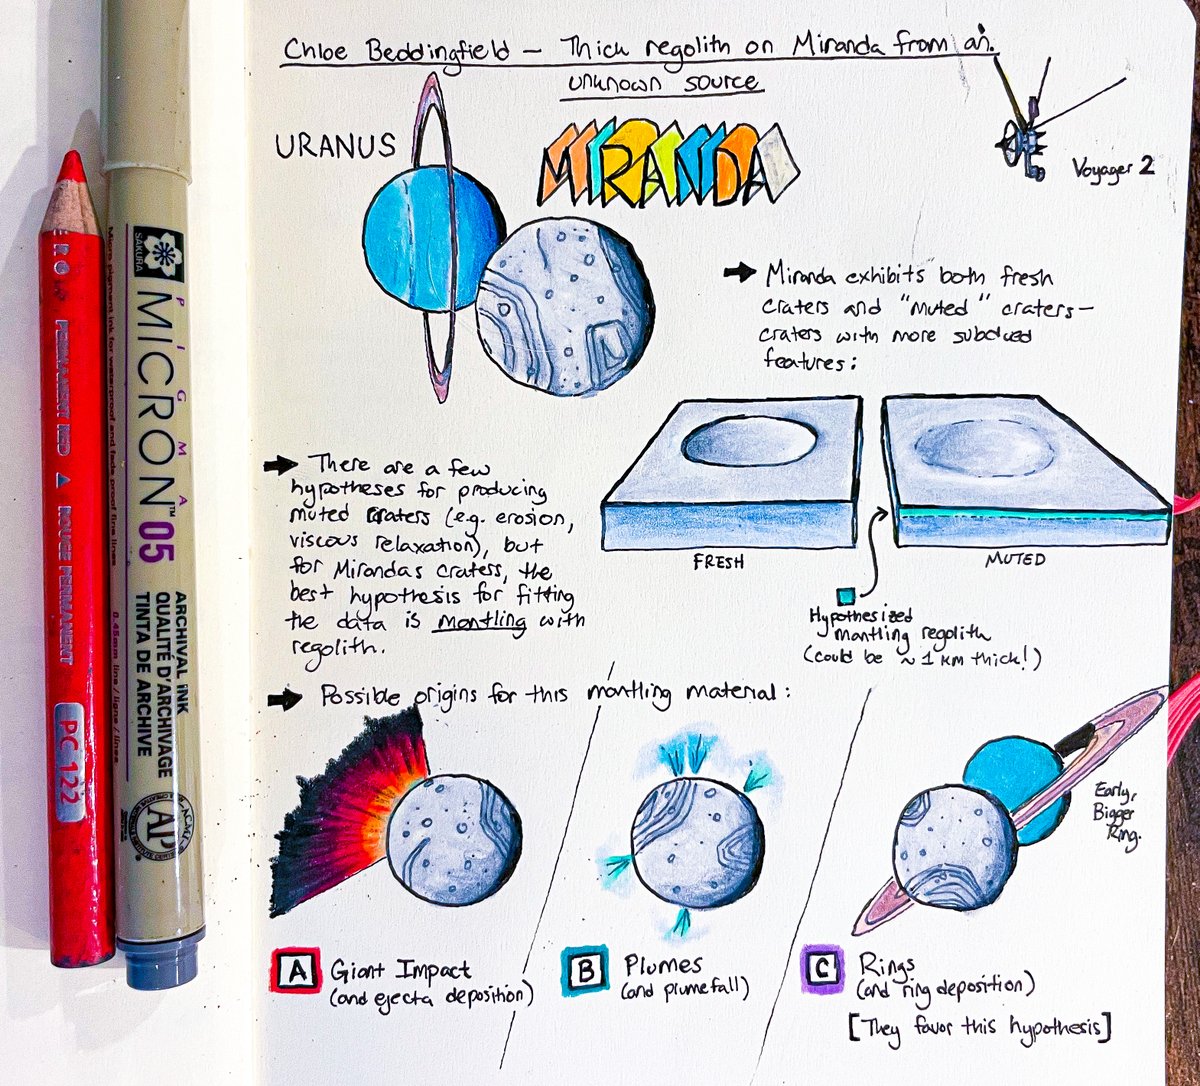 Chloe Beddingfield – Thick regolith on Miranda from an
unknown source
URANUS
MIRANDA
Voyager 2
Miranda exhibits both fresh
craters and "muted" craters –
craters with more subdued
features:
FRESH
MUTED
Hypothesized
mantling regolith
(could be ~1 km thick!)
There are a few
hypotheses for producing
muted craters (e.g. erosion,
viscous relaxation), but
for Mirandas craters, the
best hypothesis for fitting
the data is mantling with
regolith.
Possible origins for this mantling material:
Early,
Bigger
Ring.
A Giant Impact
(and ejecta deposition)
B Plumes
(and plumefall)
C Rings
(and ring deposition)
[They favor this hypothesis]
PERMANENT RED ▲ ROUGE PERMANENT
PC 122
SAKURA
PIGMA
MICRON™ 05
ARCHIVAL INK
QUALITÉ D'ARCHIVAGE
TINTA DE ARCHIVE
0.45mm line / ligne / línea
AP